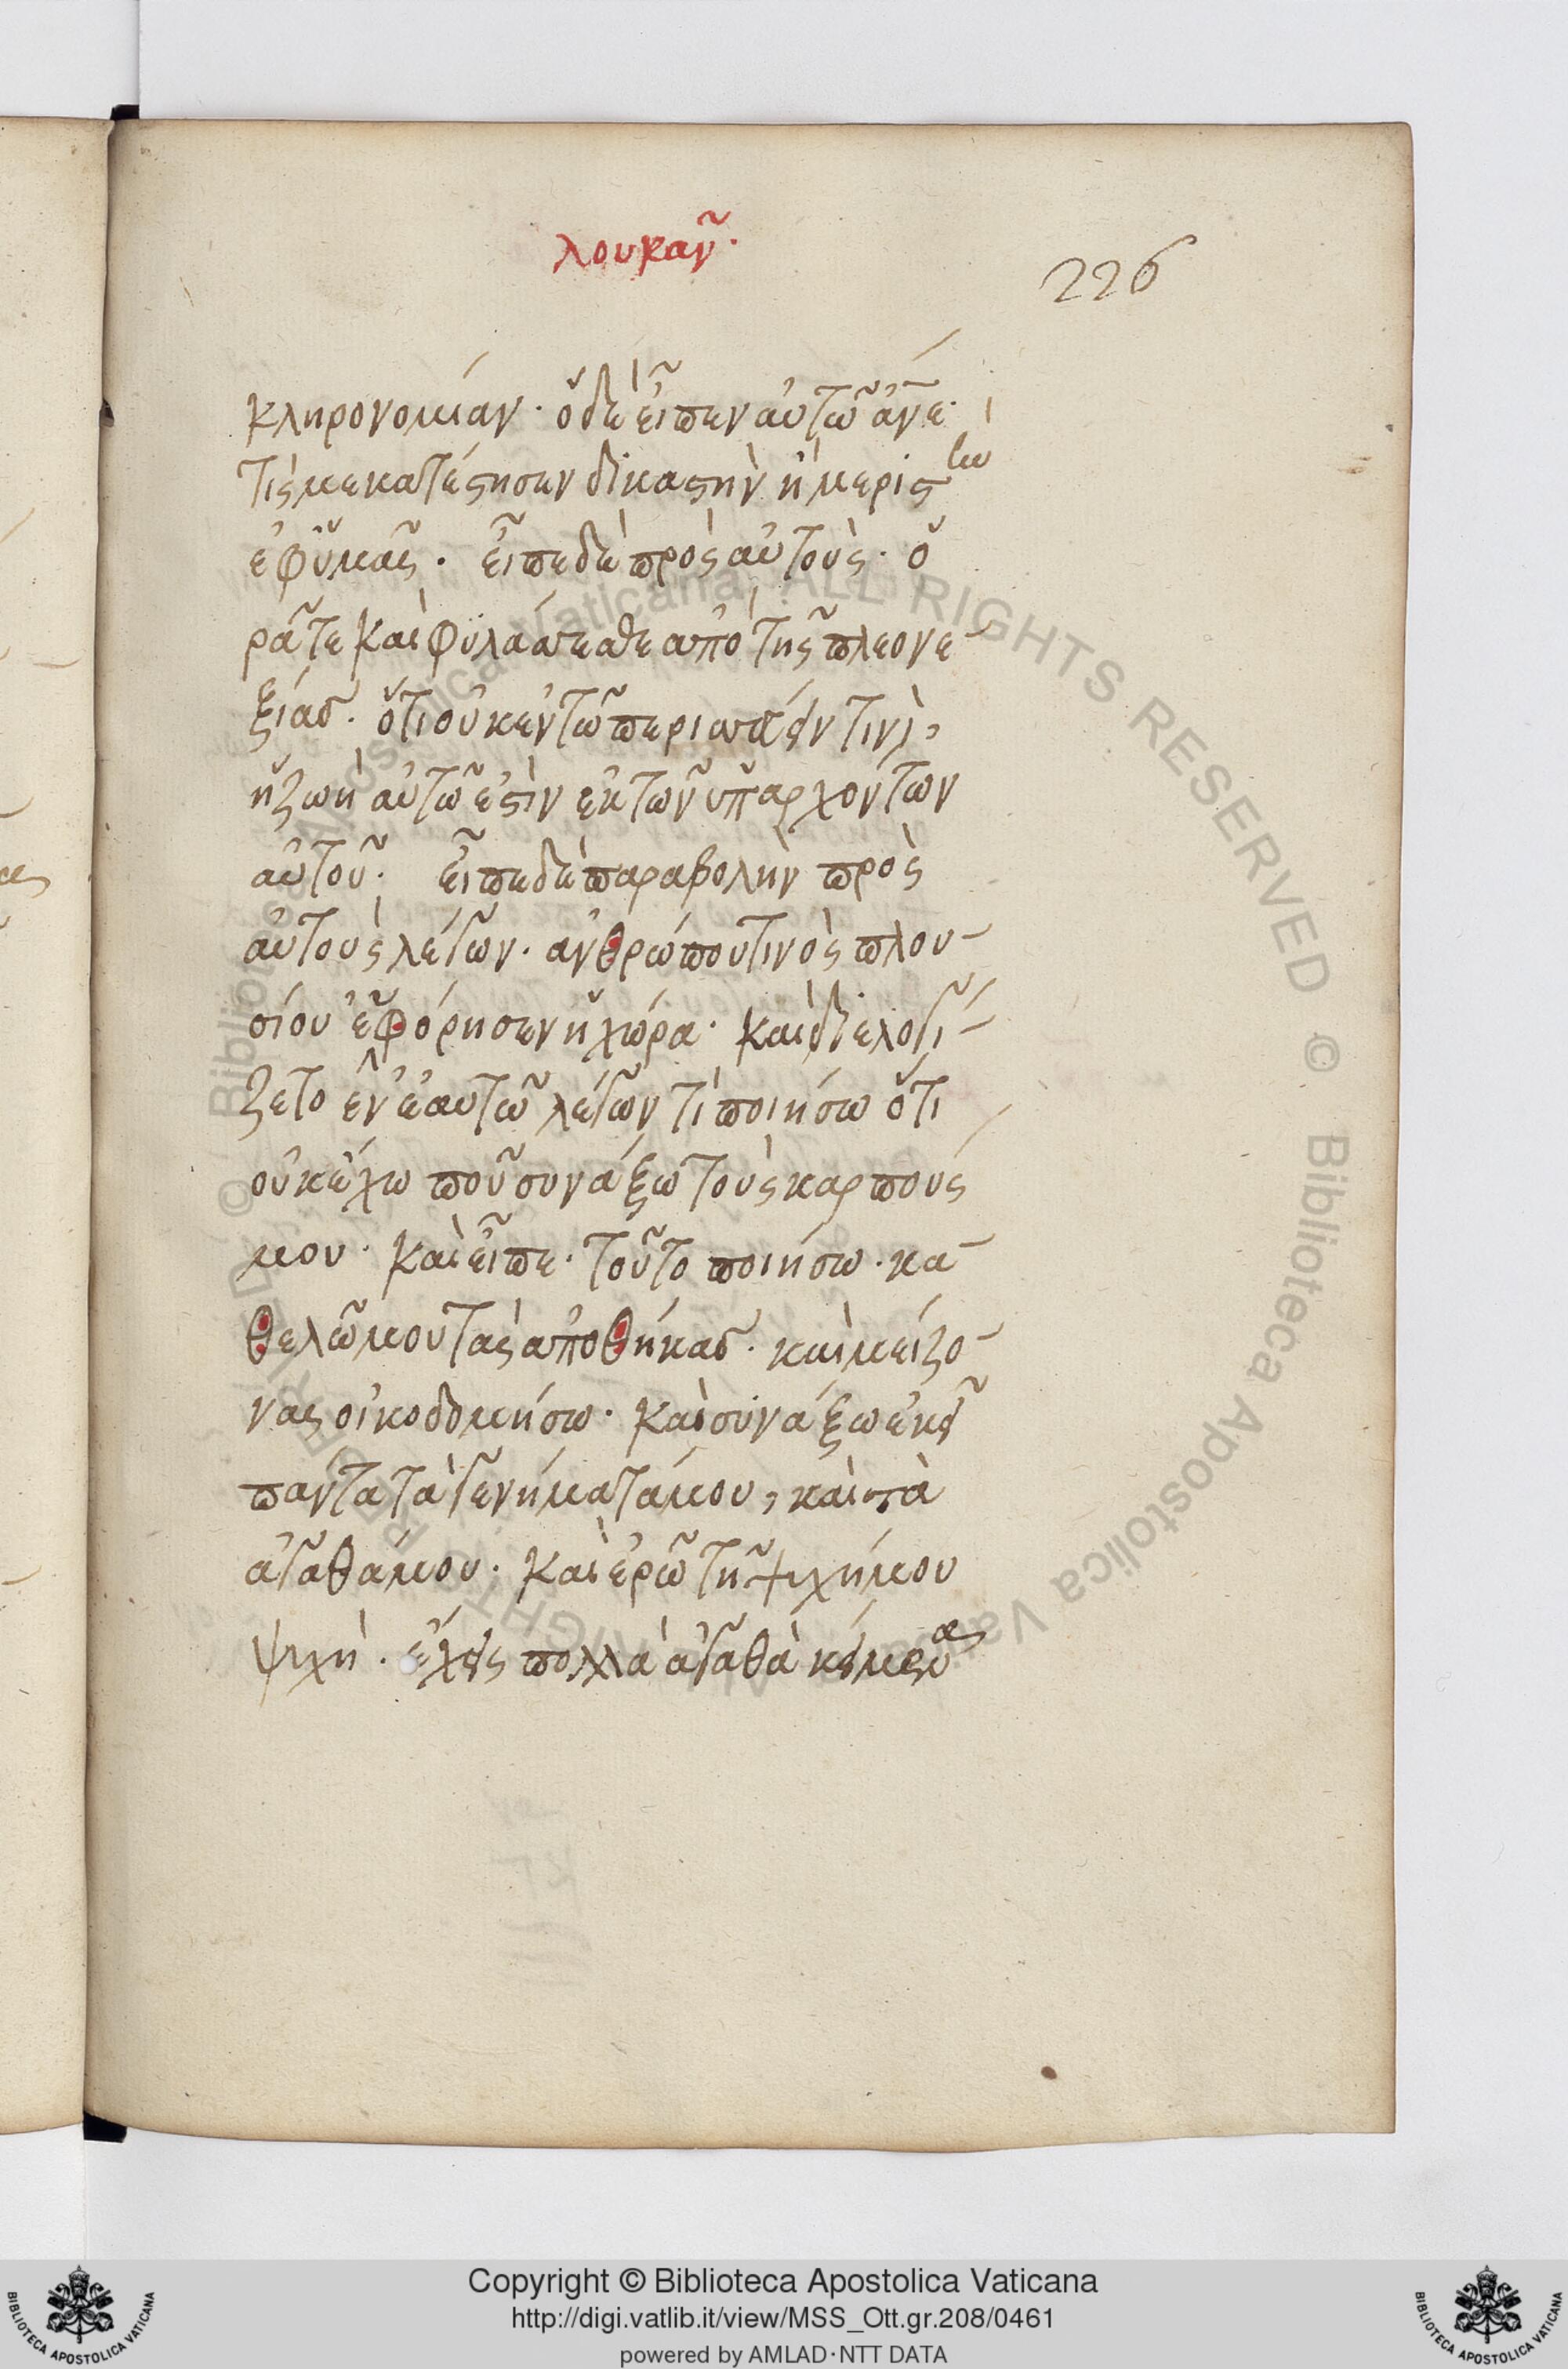 λουκᾶν·
226
κληρονομίαν· ὁ δὲ εἶπεν αὐτῶ ἄνε·
τίς με κατέστησεν δικαστὴν ἢ μεριστὴν
ἐφ ὑμᾶς· εἶπε δὲ πρὸς αὐτοὺς· ὁ
ρᾶτε καὶ φυλάσσεσθε ἀπὸ τῆς πλεονε-
ξίας· ὅτι οὐκ ἐν τῶ περισσεύειν τινὶ,
ἡ ζωὴ αὐτῶ ἐστὶν ἐκ τῶν ὑπαρχόντων
αὐτοῦ· εἶπε δὲ παραβολὴν πρὸς
αὐτοὺς λέγων· ἀνθρώπου τινὸς πλου-
σίου εὐφόρησεν ἡ χώρα· καὶ διελογί-
ζετο ἐν ἑαυτῶ λέγων τί ποιήσω ὅτι
οὐκ ἔχω ποῦ συνάξω τοὺς καρπούς
μου· καὶ εἶπε· τοῦτο ποιήσω· κα-
θελῶ μου τὰς ἀποθήκας· καὶ μείζο-
νας οἰκοδομήσω· καὶ συνάξω ἐκεῖ
πάντα τὰ γενήματά μου, καὶ τὰ
ἀγαθά μου· καὶ ἐρῶ τῆ ψυχή μου
ψυχὴ· ἔχεις πολλὰ ἀγαθὰ κείμενα
Copyright © Biblioteca Apostolica Vaticana
http://digi.vatlib.it/view/MSS_Ott.gr.208/0461
powered by AMLAD·NTT DATA